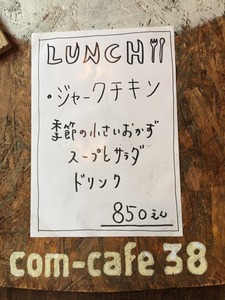 LUNCH
・ジャークチキン
季節の小さいおかず
スープとサラダ
ドリンク
850えん
com-cafe 38